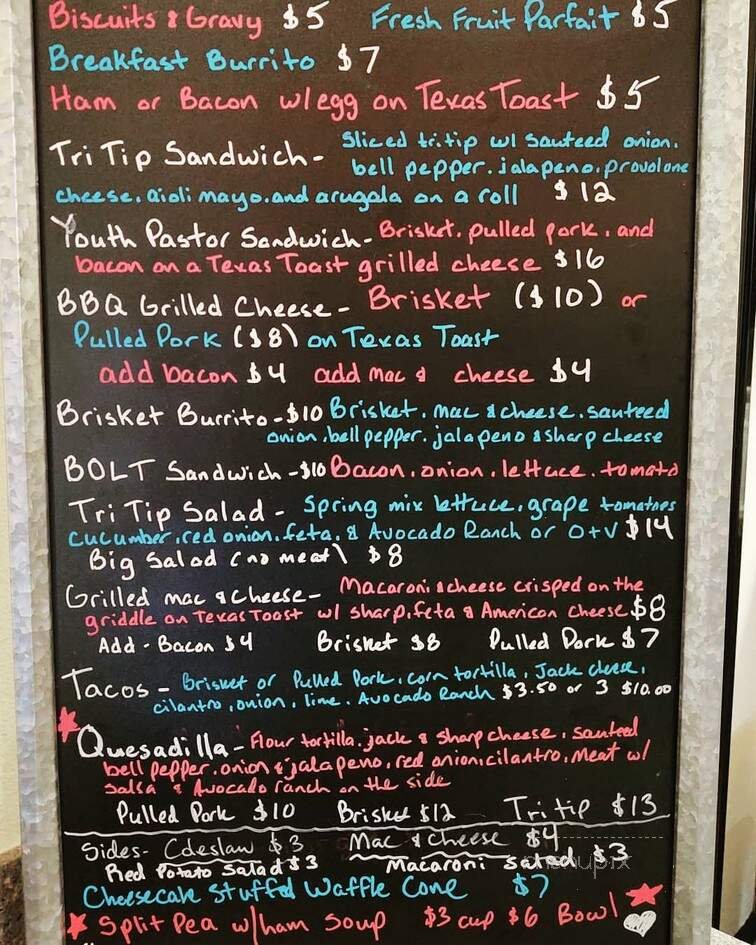 Biscuits & Gravy $5 Fresh Fruit Parfait $5
Breakfast Burrito $7
Ham or Bacon w/egg on Texas Toast $5
Tri Tip Sandwich - Sliced tri.tip w/ sauteed onion,
bell pepper, jalapeno, provolone
cheese, aioli mayo, and arugala on a roll $12
Youth Pastor Sandwich - Brisket, pulled pork, and
bacon on a Texas Toast grilled cheese $16
BBQ Grilled Cheese - Brisket ($10) or
Pulled Pork ($8) on Texas Toast
add bacon $4 add mac & cheese $4
Brisket Burrito - $10 Brisket, mac & cheese, sauteed
onion, bell pepper, jalapeno & sharp cheese
BOLT Sandwich - $10 Bacon, onion, lettuce, tomato
Tri Tip Salad - Spring mix lettuce, grape tomatoes
cucumber, red onion, feta, & Avocado Ranch or O+V $14
Big Salad (no meat) $8
Grilled mac & cheese - Macaroni & cheese crisped on the
griddle on Texas Toast w/ sharp, feta & American cheese $8
Add - Bacon $4 Brisket $8 Pulled Pork $7
Tacos - Brisket or Pulled Pork, corn tortilla, Jack cheese,
cilantro, onion, lime, Avocado Ranch $3.50 or 3 $10.00
Quesadilla - Flour tortilla, jack & sharp cheese, sauteed
bell pepper, onion & jalapeno, red onion, cilantro, Meat w/
salsa & Avocado ranch on the side
Pulled Pork $10 Brisket $12 Tri tip $13
Sides - Coleslaw $3 Mac & cheese $4
Red Potato Salad $3 Macaroni salad $3
Cheesecake Stuffed Waffle Cone $7
Split Pea w/ham Soup $3 cup $6 Bowl